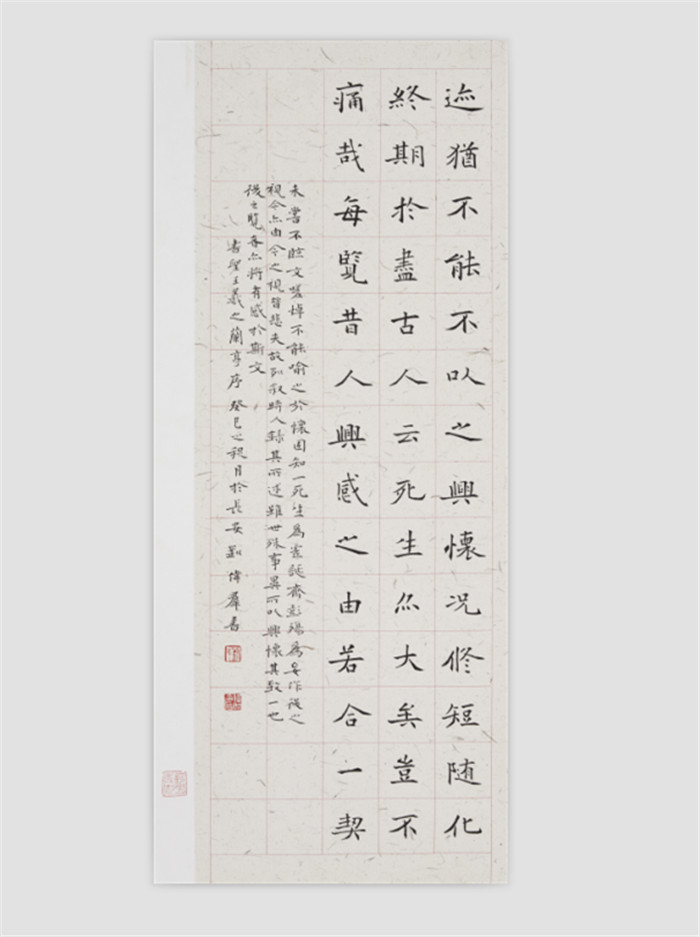 迹猶不能不以之興懷况脩短随化
終期於盡古人云死生亦大矣豈不
痛哉每覽昔人興感之由若合一契
未嘗不臨文嗟悼不能喻之於懷固知一死生為虛誕齊彭殤為妄作後之
視今亦由今之視昔悲夫故列叙時人録其所述雖世殊事異所以興懷其致一也
後之覽者亦将有感於斯文
書聖王羲之蘭亭序癸巳之秋月於長安劉偉群書